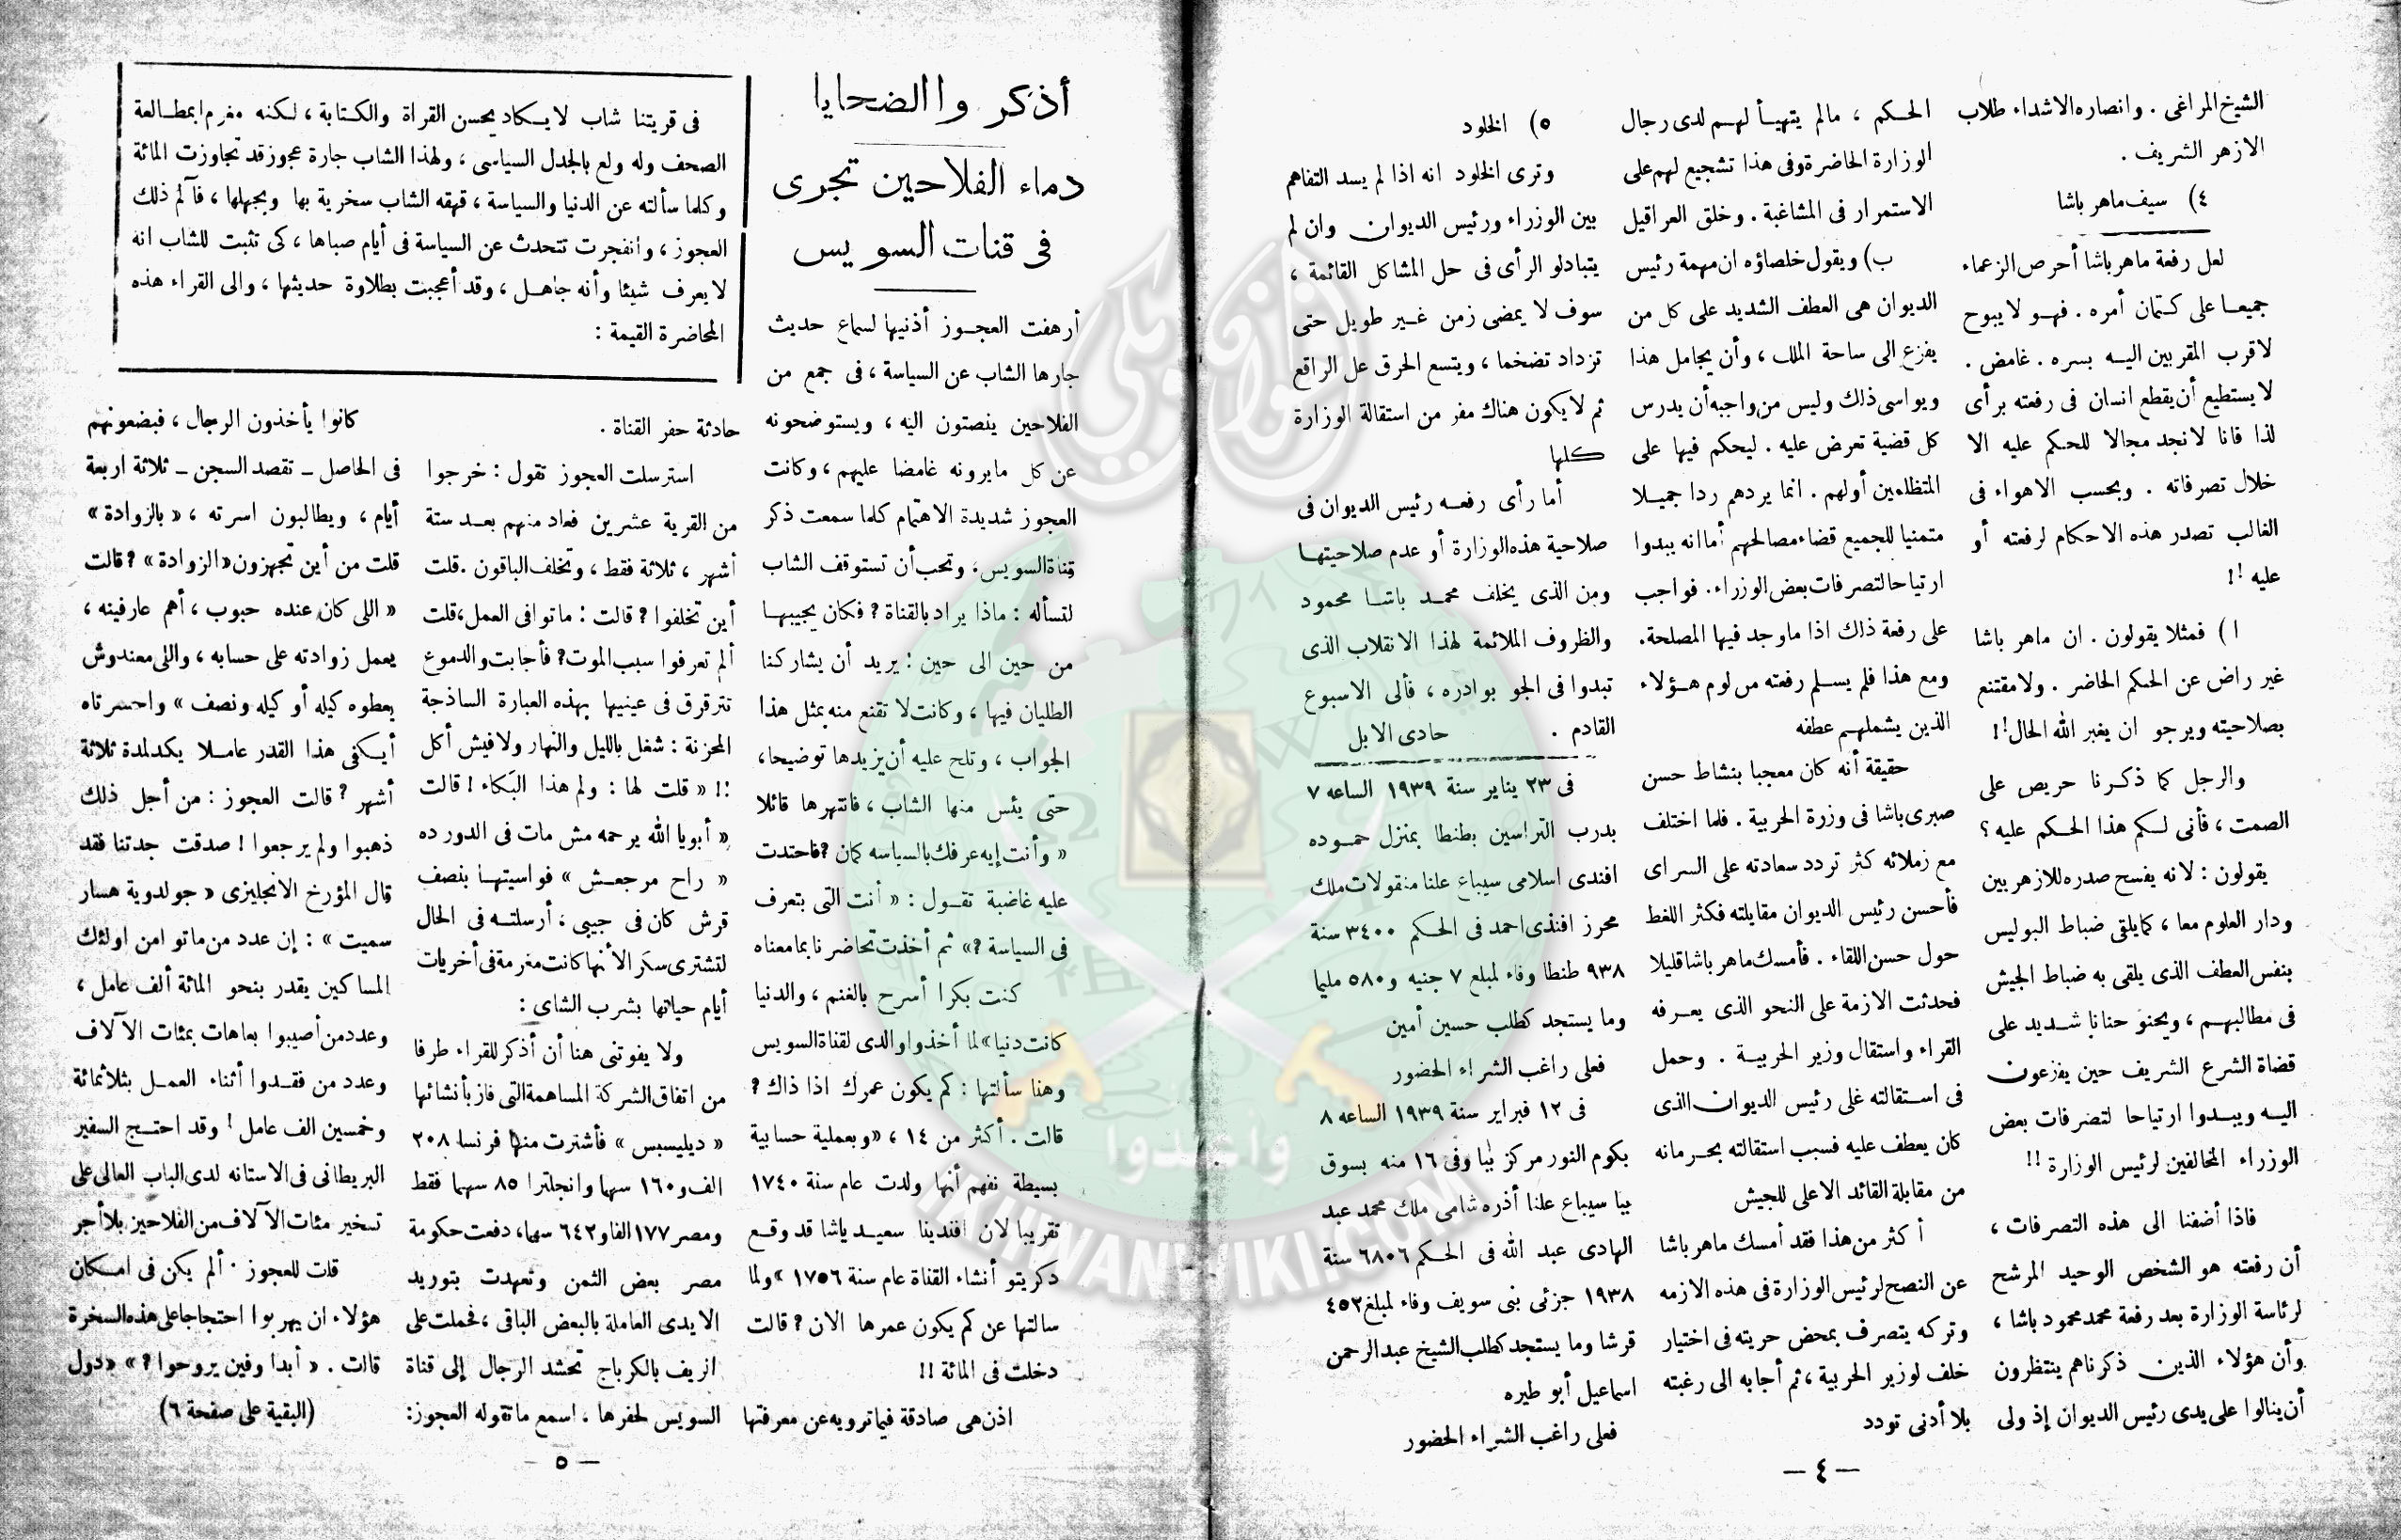 الشيخ المراغى . وانصاره الاشداء طلاب
الازهر الشريف .
٤) سيف ماهر باشا
لعل رفعة ماهر باشا أحرص الزعماء
جميعا على كتمان أمره . فهو لا يبوح
لاقرب المقربين اليه بسره . غامض .
لا يستطيع أن يقطع انسان فى رفعته برأى
لذا فانا لا نجد مجالا للحكم عليه الا
خلال تصرفاته . وبحسب الاهواء فى
الغالب تصدر هذه الاحكام لرفعته أو
عليه !!
ا ) فمثلا يقولون . ان ماهر باشا
غير راض عن الحكم الحاضر . ولا مقتنع
بصلاحيته ويرجو ان يغير الله الحال !!
والرجل كما ذكرنا حريص على
الصمت ، فأنى لكم هذا الحكم عليه ؟
يقولون : لانه يفسح صدره للازهريين
ودار العلوم معا ، كما يلقى ضباط البوليس
بنفس العطف الذى يلقى به ضباط الجيش
فى مطالبهم ، ويحنو حنانا شديد على
قضاة الشرع الشريف حين يفزعون
اليه ويبدوا ارتياحا لتصرفات بعض
الوزراء المخالفين لرئيس الوزارة !!
فاذا أضفنا الى هذه التصرفات ،
أن رفعته هو الشخص الوحيد المرشح
لرئاسة الوزارة بعد رفعة محمد محمود باشا ،
وأن هؤلاء الذين ذكرناهم ينتظرون
أن ينالوا على يدى رئيس الديوان إذ ولى
الحكم ، مالم يتهيأ لهم لدى رجال
الوزارة الحاضرة وفى هذا تشجيع لهم على
الاستمرار فى المشاغبة . وخلق العراقيل
ب) ويقول خلصاؤه ان مهمة رئيس
الديوان هى العطف الشديد على كل من
يفزع الى ساحة الملك ، وأن يجامل هذا
ويواسى ذلك وليس من واجبه أن يدرس
كل قضية تعرض عليه . ليحكم فيها على
المتظلمين أولهم . انما يردهم ردا جميلا
متمنيا للجميع قضاء مصالحهم أما انه يبدوا
ارتياحا لتصرفات بعض الوزراء . فواجب
على رفعة ذلك اذا ما وجد فيها المصلحة .
ومع هذا فلم يسلم رفعته من لوم هؤلاء
الذين يشملهم عطفه
حقيقة أنه كان معجبا بنشاط حسن
صبرى باشا فى وزرة الحربية . فلما اختلف
مع زملائه كثر تردد سعادته على السراى
فأحسن رئيس الديوان مقابلته فكثر اللغط
حول حسن اللقاء . فأمسك ماهر باشا قليلا
فحدثت الازمة على النحو الذى يعرفه
القراء واستقال وزير الحربية . وحمل
فى استقالته على رئيس الديوان الذى
كان يعطف عليه فسبب استقالته بحرمانه
من مقابلة القائد الاعلى للجيش
أكثر من هذا فقد أمسك ماهر باشا
عن النصح لرئيس الوزارة فى هذه الازمه
وتركه يتصرف بمحض حريته فى اختيار
خلف لوزير الحربية ، ثم أجابه الى رغبته
بلا أدنى تودد
٥) الخلود
وترى الخلود انه اذا لم يسد التفاهم
بين الوزراء ورئيس الديوان وان لم
يتبادلو الرأى فى حل المشاكل القائمة ،
سوف لا يمضى زمن غير طويل حتى
تزداد تضخما ، ويتسع الخرق على الراقع
ثم لا يكون هناك مفر من استقالة الوزارة
كلها
أما رأى رفعه رئيس الديوان فى
صلاحية هذه الوزارة أو عدم صلاحيتها
ومن الذى يخلف محمد باشا محمود
والظروف الملائمة لهذا الانقلاب الذى
تبدوا فى الجو بوادره ، فألى الاسبوع
القادم . حادى الابل
فى ٢٣ يناير سنة ١٩٣٩ الساعه ٧
بدرب التراسين بطنطا بمنزل حموده
افندى اسلامى سيباع علنا منقولات ملك
محرز افندى احمد فى الحكم ٣٤٠٠ سنة
٩٣٨ طنطا وفاء لمبلغ ٧ جنيه و ٥٨٠ مليما
وما يستجد كطلب حسين أمين
فعلى راغب الشراء الحضور
فى ١٢ فبراير سنة ١٩٣٩ الساعه ٨
بكوم النور مركز ببا وفى ١٦ منه بسوق
ببا سيباع علنا أذره شامى ملك محمد عبد
الهادى عبد الله فى الحكم ٦٨٠٦ سنة
١٩٣٨ جزئى بنى سويف وفاء لمبلغ ٤٥٢
قرشا وما يستجد كطلب الشيخ عبد الرحمن
اسماعيل أبو طيره
فعلى راغب الشراء الحضور
— ٤ —
أذكر وا الضحايا
دماء الفلاحين تجرى
فى قنات السويس
فى قريتنا شاب لا يكاد يحسن القراة والكتابة ، لكنه مغرم ابمطالعة
الصحف وله ولع بالجدل السياسى ، ولهذا الشاب جارة عجوز قد تجاوزت المائة
وكلما سألته عن الدنيا والسياسة ، قهقه الشاب سخرية بها وبجهلها ، فآلم ذلك
العجوز ، وانفجرت تتحدث عن السياسة فى أيام صباها ، كى تثبت للشاب انه
لا يعرف شيئا وأنه جاهل ، وقد أعجبت بطلاوة حديثها ، والى القراء هذه
المحاضرة القيمة :
أرهفت العجوز أذنيها لسماع حديث
جارها الشاب عن السياسة ، فى جمع من
الفلاحين ينصتون اليه ، ويستوضحونه
عن كل مايرونه غامضا عليهم ، وكانت
العجوز شديدة الاهتمام كلما سمعت ذكر
قناة السويس ، وتحب أن تستوقف الشاب
لتسأله : ماذا يراد بالقناة ؟ فكان يجيبها
من حين الى حين : يريد أن يشاركنا
الطليان فيها ، وكانت لا تقنع منه بمثل هذا
الجواب ، وتلح عليه أن يزيدها توضيحا ،
حتى يئس منها الشاب ، فانتهرها قائلا
« وأنت إيه عرفك بالسياسه كمان ؟ فاحتدت
عليه غاضبة تقول : « أنت التى بتعرف
فى السياسة ؟ » ثم أخذت تحاضرنا بما معناه
كنت بكرا أسرح بالغنم ، والدنيا
كانت دنيا » لما أخذوا والدى لقناة السويس
وهنا سألتها : كم يكون عمرك اذا ذاك ؟
قالت . أكثر من ١٤ ، « وبعملية حسابية
بسيطة نفهم أنها ولدت عام سنة ١٧٤٠
تقريبا لان افندينا سعيد باشا قد وقع
دكريتو أنشاء القناة عام سنة ١٧٥٦ » ولما
سالتها عن كم يكون عمرها الان ؟ قالت
دخلت فى المائة !!
اذن هى صادقة فيما ترويه عن معرفتها
حادثة حفر القناة .
استرسلت العجوز تقول : خرجوا
من القرية عشرين فعاد منهم بعد ستة
أشهر ، ثلاثة فقط ، وتخلف الباقون . قلت
أين تخلفوا ؟ قالت : ماتوا فى العمل ، قلت
ألم تعرفوا سبب الموت ؟ فأجابت والدموع
تترقرق فى عينيها بهذه العبارة الساذجة
المحزنة : شغل بالليل والنهار ولا فيش أكل
!! « قلت لها : ولم هذا البكاء ! قالت
« أبويا الله يرحمه مش مات فى الدور ده
« راح مرجعش » فواسيتها بنصف
قرش كان فى جيبى ، أرسلته فى الحال
لتشترى سكر الأنها كانت مغرمة فى أخريات
أيام حياتها بشرب الشاى :
ولا يفوتنى هنا أن أذكر للقراء طرفا
من اتفاق الشركة المساهمة التى فاز بأنشائها
« ديليسبس » فأشترت منها فرنسا ٢٠٨
الف و ١٦٠ سهما وانجلترا ٨٥ سهما فقط
ومصر ١٧٧ الفا و ٦٤٢ سهما ، دفعت حكومة
مصر بعض الثمن وتعهدت بتوريد
الايدى العاملة بالبعض الباقى ، فحملت على
الريف بالكرباج تحشد الرجال إلى قناة
السويس لحفرها ، اسمع ماتقوله العجوز :
كانوا يأخذون الرجال ، فيضعونهم
فى الحاصل ــ تقصد السجن ــ ثلاثة اربعة
أيام ، ويطالبون اسرته ، « بالزوادة »
قلت من أين تجهزون « الزوادة » ؟ قالت
« اللى كان عنده حبوب ، أهم عارفينه ،
يعمل زوادته على حسابه ، واللى معندوش
يعطوه كيله أو كيله ونصف » واحسرتاه
أيكفى هذا القدر عاملا يكد لمدة ثلاثة
أشهر ؟ قالت العجوز : من أجل ذلك
ذهبوا ولم يرجعوا ! صدقت جدتنا فقد
قال المؤرخ الانجليزى « جولدوية هسار
سميت » : إن عدد من ماتو امن اولئك
المساكين يقدر بنحو المائة ألف عامل ،
وعدد من أصيبوا بعاهات بمئات الآلاف
وعدد من فقدوا أثناء العمل بثلاثمائة
وخمسين الف عامل ! وقد احتج السفير
البريطانى فى الاستانه لدى الباب العالى على
تسخير مئات الآلاف من الفلاحين بلا أجر
قلت للعجوز . ألم يكن فى امكان
هؤلاء ان يهربوا احتجاجا على هذه السخرة
قالت . « أبدا وفين يروحوا ؟ » « دول
(البقية على صفحة ٦)
— ٥ —
إخوان ويكي
واعدوا
IKHWANWIKI.COM